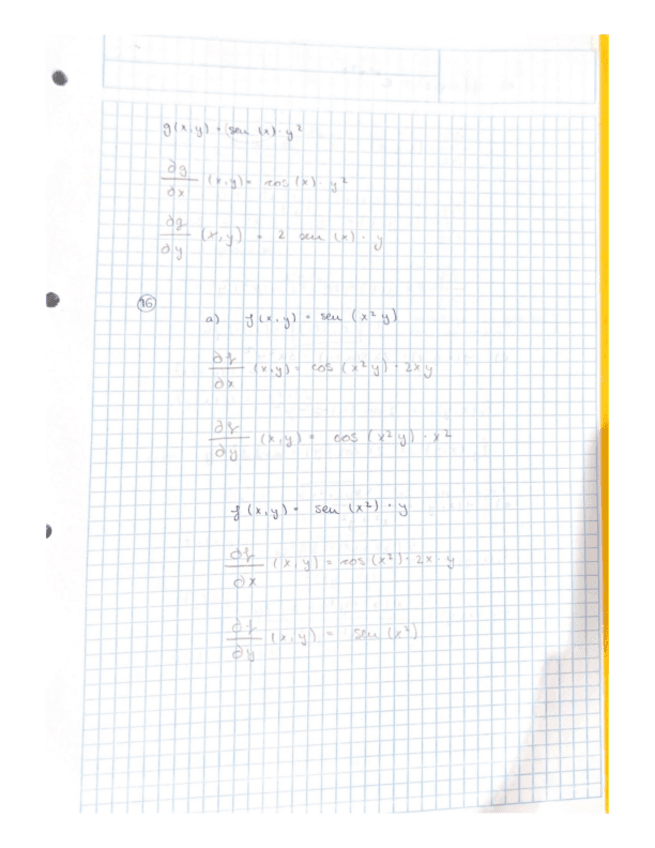 g(x,y) = sen (x) · y²
∂g/∂x (x,y) = cos (x) · y²
∂g/∂y (x,y) = 2 sen (x) · y
16
a) f(x,y) = sen (x² y)
∂f/∂x (x,y) = cos (x² y) · 2xy
∂f/∂y (x,y) = cos (x² y) · x²
f(x,y) = sen (x²) · y
∂f/∂x (x,y) = cos (x²) · 2x · y
∂f/∂y (x,y) = sen (x²)